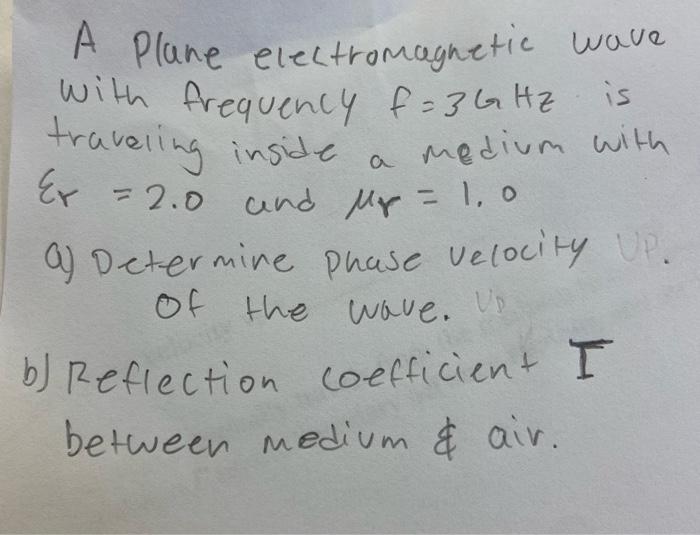 A Plane electromagnetic wave
with frequency f = 3 GHz is
traveling inside a medium with
εr = 2.0 and μr = 1.0
a) Determine phase velocity UP.
of the wave. Up
b) Reflection coefficient I
between medium & air.